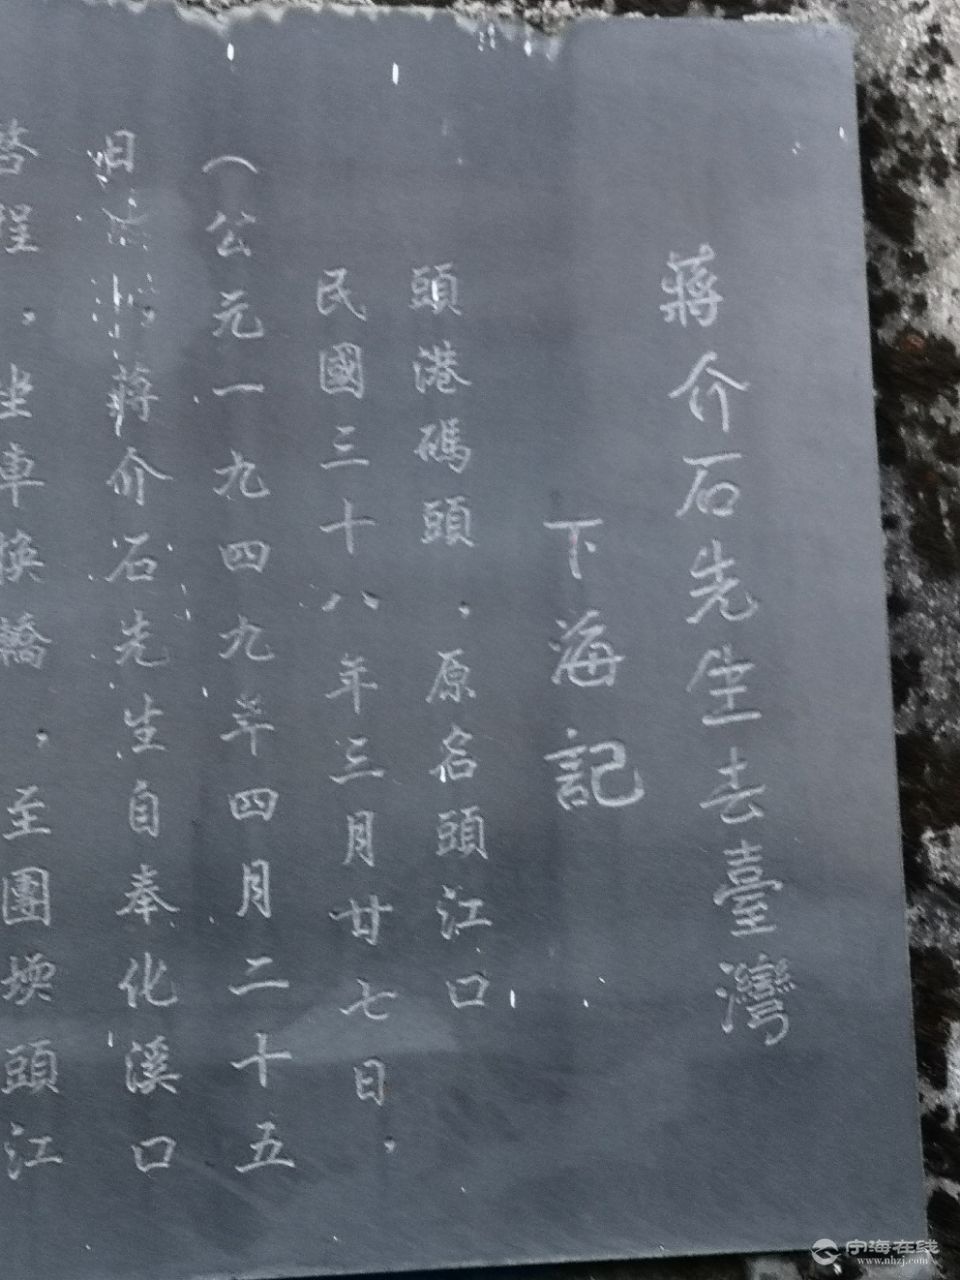 蔣介石先生去臺灣
下海記
頭港碼頭．原名頭江口
民國三十八年三月廿七日，
（公元一九四九年四月二十五
日 蔣介石先生自奉化溪口
啓程，坐車換轎，至團堧頭江
宁海在线
www.nhzj.com